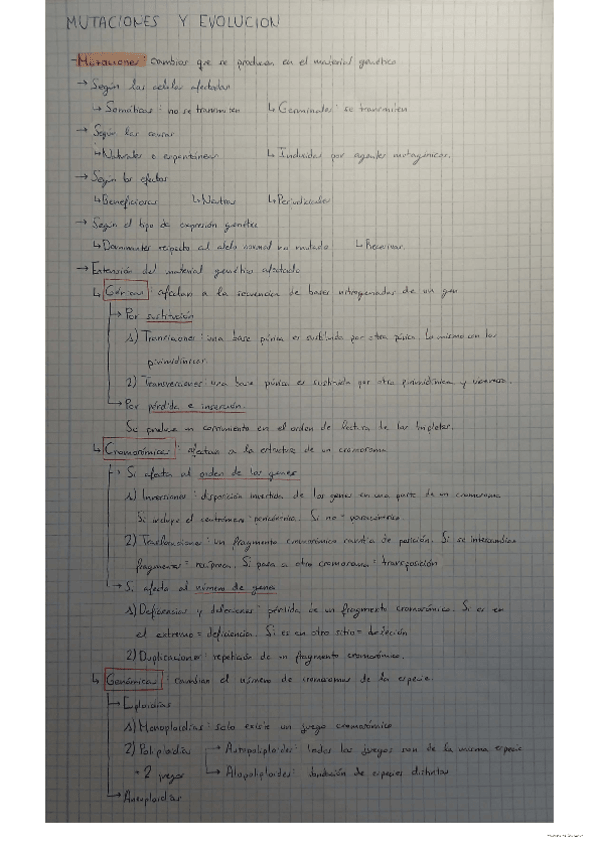 MUTACIONES Y EVOLUCION
- Mutaciones: cambios que se producen en el material genético
→ Según las células afectadas
↳ Somáticas: no se transmiten ↳ Germinales: se transmiten
→ Según las causas
↳ Naturales o espontáneas ↳ Inducidas por agentes mutagénicos.
→ Según los efectos
↳ Beneficiosas ↳ Neutras ↳ Perjudiciales
→ Según el tipo de expresión genética
↳ Dominantes respecto al alelo normal no mutado ↳ Recesivas.
→ Extensión del material genético afectado
↳ Génicas: afectan a la secuencia de bases nitrogenadas de un gen
→ Por sustitución
1) Transiciones: una base púrica es sustituida por otra púrica. Lo mismo con las
pirimidínicas.
2) Transversiones: una base púrica es sustituida por otra pirimidínica y viceversa.
→ Por pérdida e inserción.
Se produce un corrimiento en el orden de lectura de los tripletes.
↳ Cromosómicas: afectan a la estructura de un cromosoma
→ Si afecta al orden de los genes
1) Inversiones: disposición invertida de los genes en una parte de un cromosoma
Si incluye el centrómero = pericéntrica. Si no = paracéntrica.
2) Traslocaciones: un fragmento cromosómico cambia de posición. Si se intercambian
fragmentos = recíproca. Si pasa a otro cromosoma = transposición
→ Si afecta al número de genes
1) Deficiencias y deleciones: pérdida de un fragmento cromosómico. Si es en
el extremo = deficiencia. Si es en otro sitio = deleción
2) Duplicaciones: repetición de un fragmento cromosómico.
↳ Genómicas: cambian el número de cromosomas de la especie.
→ Euploidías
1) Monoploidías: solo existe un juego cromosómico
2) Poliploidías → Autopoliploides: todos los juegos son de la misma especie
+ 2 juegos → Alopoliploides: de especies distintas
→ Aneuploidías